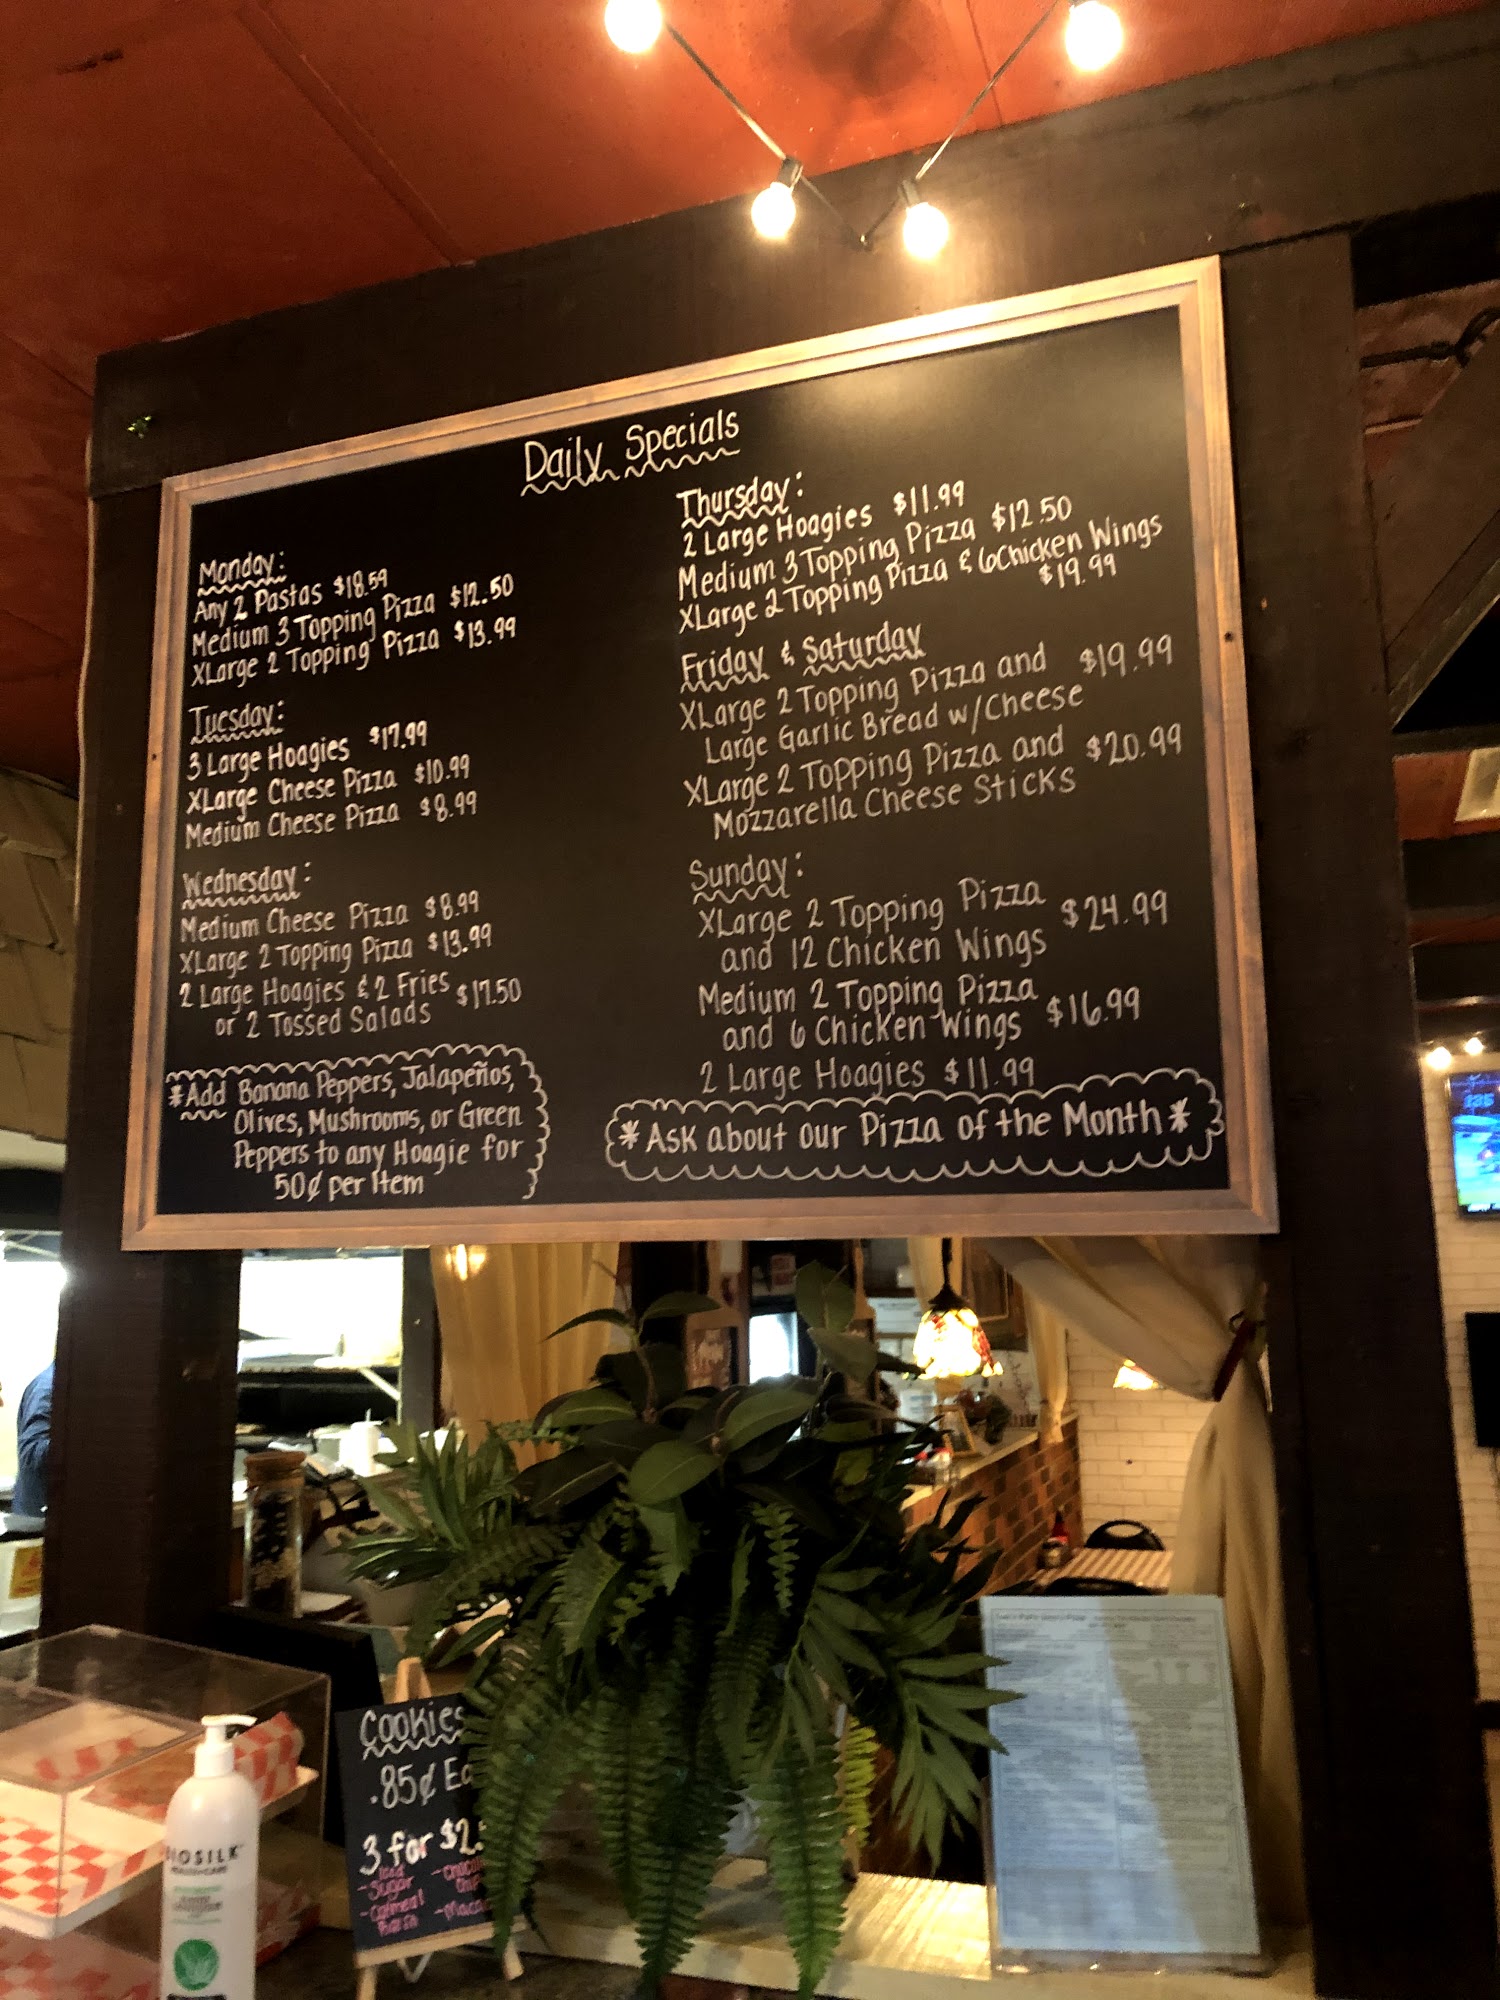 Daily Specials
Monday:
Any 2 Pastas $18.59
Medium 3 Topping Pizza $12.50
XLarge 2 Topping Pizza $13.99
Tuesday:
3 Large Hoagies $17.99
XLarge Cheese Pizza $10.99
Medium Cheese Pizza $8.99
Wednesday:
Medium Cheese Pizza $8.99
XLarge 2 Topping Pizza $13.99
2 Large Hoagies & 2 Fries $17.50
or 2 Tossed Salads
*Add Banana Peppers, Jalapeños,
Olives, Mushrooms, or Green
Peppers to any Hoagie for
50¢ per Item
Thursday:
2 Large Hoagies $11.99
Medium 3 Topping Pizza $12.50
XLarge 2 Topping Pizza & 6 Chicken Wings
$19.99
Friday & Saturday
XLarge 2 Topping Pizza and $19.99
Large Garlic Bread w/Cheese
XLarge 2 Topping Pizza and $20.99
Mozzarella Cheese Sticks
Sunday:
XLarge 2 Topping Pizza $24.99
and 12 Chicken Wings
Medium 2 Topping Pizza $16.99
and 6 Chicken Wings
2 Large Hoagies $11.99
*Ask about our Pizza of the Month*
Cookies
.85¢ Ea
3 for $2.
- Iced
Sugar
- Oatmeal
Raisin
BIOSILK